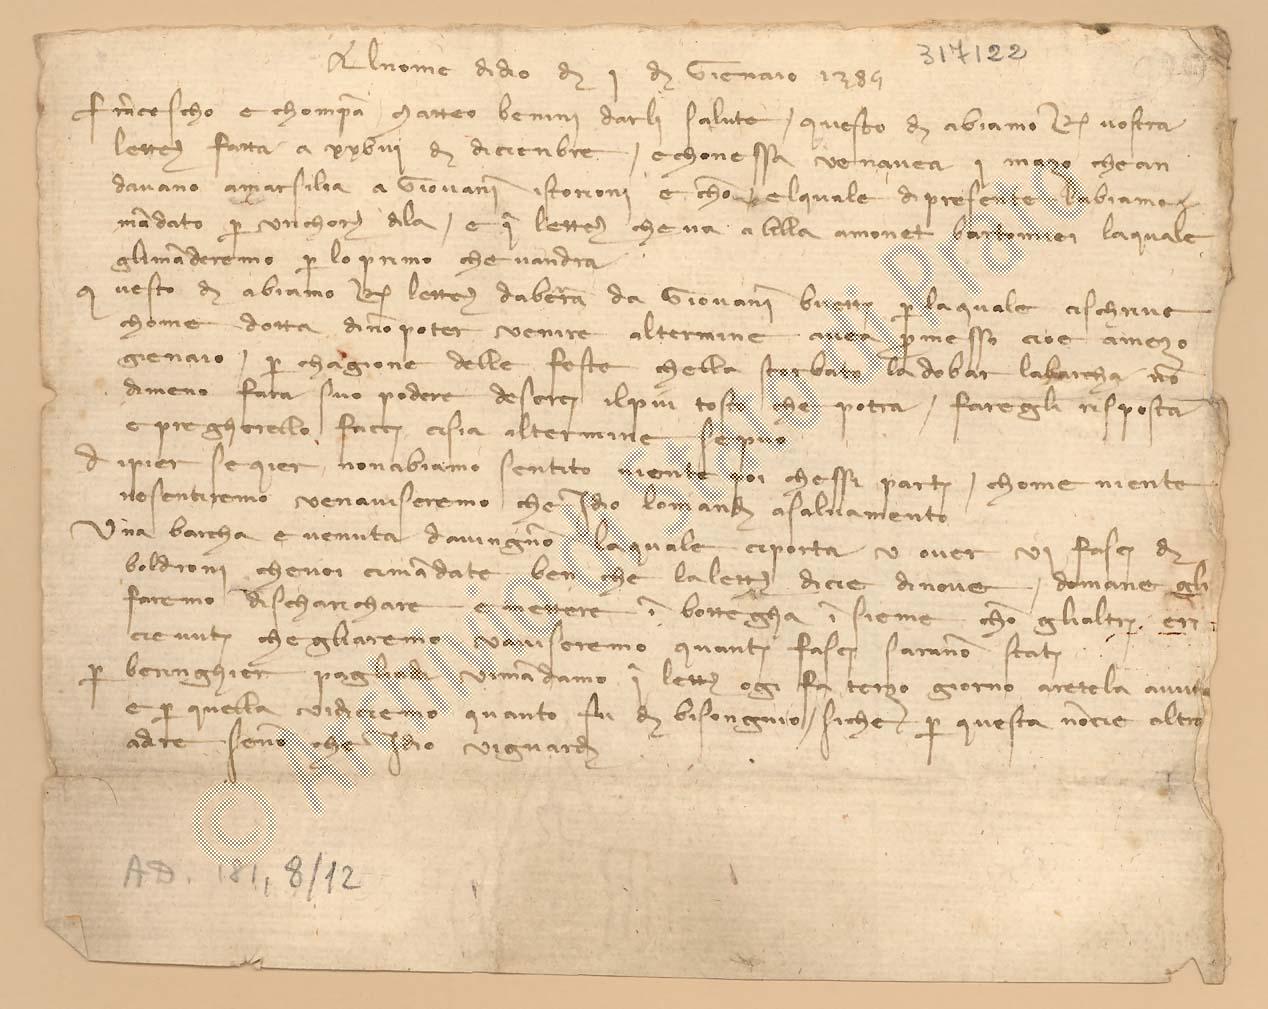 317122
Al nome di dio di 1 di Gienaio 1389
franciescho e chonpa Matteo benini d'arli salute / questo di abiamo Rta vostra
lettera fatta a xxvii di dicienbre / e chon essa venavea 1 mazo che an
davano a marsilia a Giovani e chō / el quale di presente l'abiamo
mādato p di la / e 1a lettera che va a bartomei la quale
gli māderemo p lo primo che vi andra
questo di abiamo Rta lettera da bera da Giovani p la quale ci schrive
chome dotta di nō poter venire al termine avea pmesso cioe a mezo
gienaio / p chagione delle feste che lla storbato l'adobar la barcha nō
dimeno fara suo podere d'eserci il piu tosto che potra / fare gli risposta
e pregherello facci ci sia al termine se puo
di pier seqier non abiamo sentito niente poi che ssi parti / chome niente
ne sentiremo ve n'aviseremo che Idio lo mandi a salvamento
Una barcha e venuta d'avingnō la quale ci porta v over vi fasci di
boldroni che voi ci mādate ben che la lettera dicie di nove / domane gli
faremo discharichare e mettere ī bottegha īsieme chō gli altri
cievuti che gli aremo v'aviseremo quanti fasci sarāno stati
p beringhier vi mādamo 1a lettera ogi fa terzo giorno aretela avuta
e p quella vi diciemo quanto fu di bisongnio / siche p questa nō cie altro
a dire se nō che Idio vi guardi
© Archivio di Stato di Prato
AD. 181, 8/12